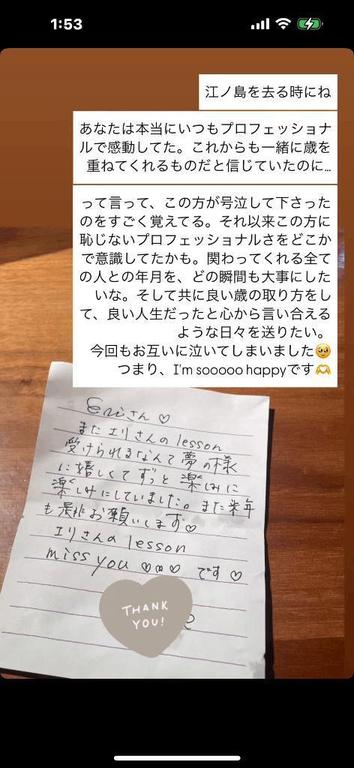 1:53
江ノ島を去る時にね
あなたは本当にいつもプロフェッショナ
ルで感動してた。これからも一緒に歳を
重ねてくれるものだと信じていたのに…
って言って、この方が号泣して下さった
のをすごく覚えてる。それ以来この方に
恥じないプロフェッショナルさをどこか
で意識してたかも。関わってくれる全て
の人との年月を、どの瞬間も大事にした
いな。そして共に良い歳の取り方をし
て、良い人生だったと心から言い合える
ような日々を送りたい。
今回もお互いに泣いてしまいました🥹
つまり、I'm sooooo happyです🫶
Eriさん♡
またエリさんのlesson
受けられるなんて夢の様
に嬉しくてずっと楽しみに
楽しみにしていました。また来年
も是非お願いします♡
エリさんのlesson
miss you ♡♡♡ です♡
THANK
YOU!